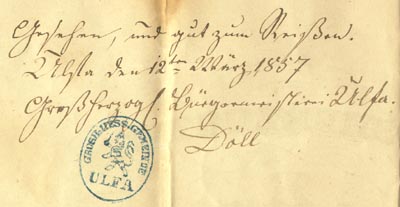 Gesehen, und gut zum Reißen.
Ulfa den 12ten März 1857
Großherzogl. Bürgermeisterei Ulfa.
Döll
GROSH. HESS. GEMEINDE
ULFA